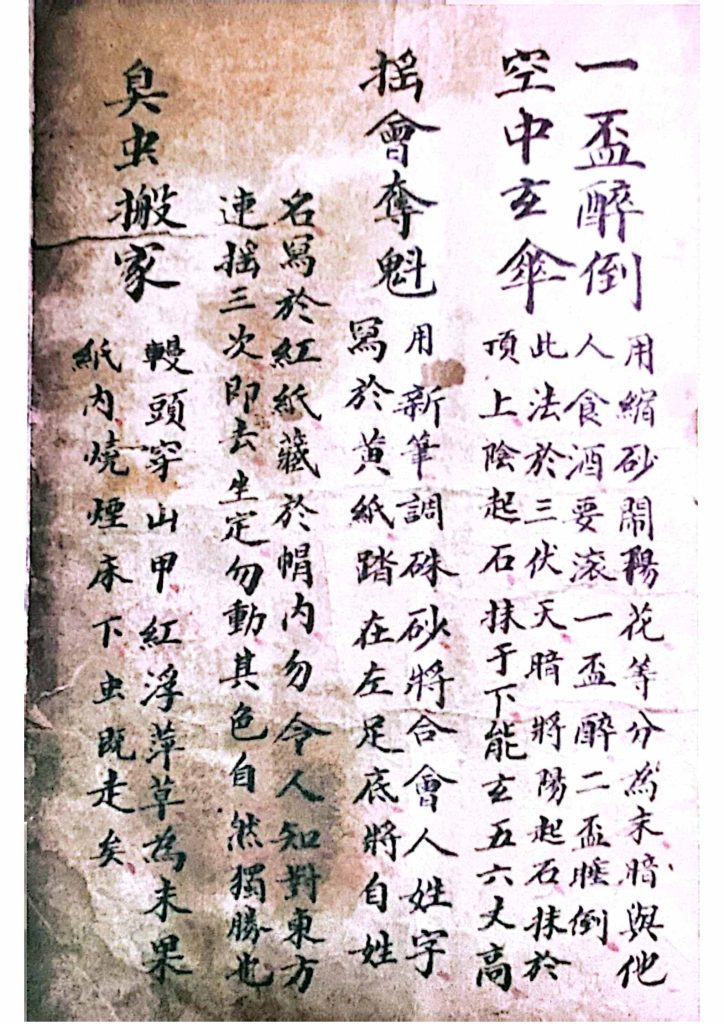 一盃醉倒
用縮砂鬧陽花等分為末暗與他
人食酒要滚一盃醉二盃睡倒
空中玄傘
此法於三伏天暗將陽起石抹於
頂上陰起石抹于下能玄五六丈高
摇會奪魁
用新筆調硃砂將合會人姓字
寫於黄紙踏在左足底將自姓
名寫於紅紙藏於帽内勿令人知對東方
連摇三次即去坐定勿動其色自然獨勝也
臭虫搬家
鰻頭穿山甲紅浮萍草為末果
紙内燒煙床下虫既走矣